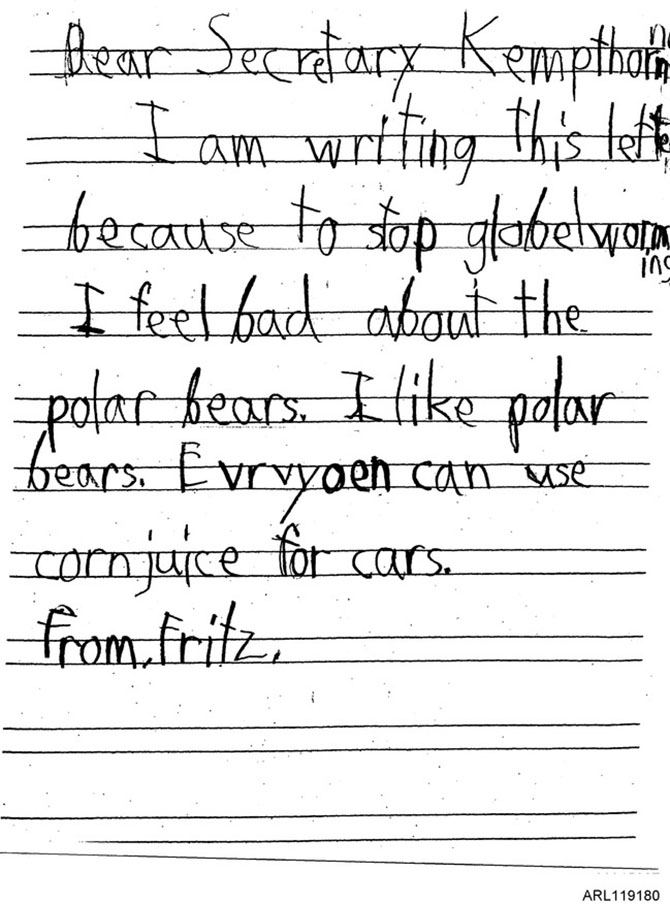 Dear Secretary Kempthorn
I am writing this lette
because to stop globelworm
ing
I feel bad about the
polar bears. I like polar
bears. Evrvyoen can use
cornjuice for cars.
From, Fritz.
ARL119180